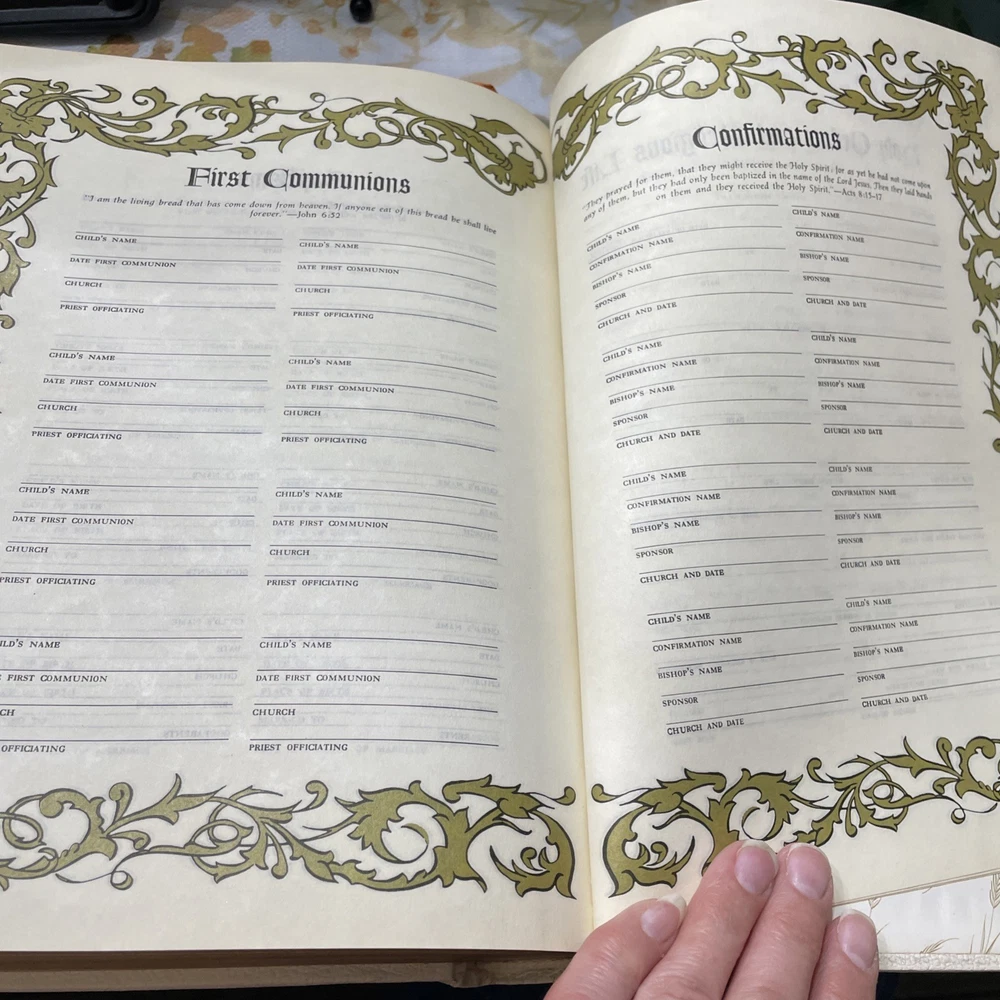 First Communions
"I am the living bread that has come down from heaven. If anyone eat of this bread he shall live
forever."—John 6:52
CHILD'S NAME
DATE FIRST COMMUNION
CHURCH
PRIEST OFFICIATING
CHILD'S NAME
DATE FIRST COMMUNION
CHURCH
PRIEST OFFICIATING
CHILD'S NAME
DATE FIRST COMMUNION
CHURCH
PRIEST OFFICIATING
CHILD'S NAME
DATE FIRST COMMUNION
CHURCH
PRIEST OFFICIATING
CHILD'S NAME
DATE FIRST COMMUNION
CHURCH
PRIEST OFFICIATING
CHILD'S NAME
DATE FIRST COMMUNION
CHURCH
PRIEST OFFICIATING
ILD'S NAME
E FIRST COMMUNION
CH
OFFICIATING
CHILD'S NAME
DATE FIRST COMMUNION
CHURCH
PRIEST OFFICIATING
Confirmations
"They prayed for them, that they might receive the Holy Spirit; for as yet he had not come upon
any of them, but they had only been baptized in the name of the Lord Jesus. Then they laid hands
on them and they received the Holy Spirit."—Acts 8:15-17
CHILD'S NAME
CONFIRMATION NAME
BISHOP'S NAME
SPONSOR
CHURCH AND DATE
CHILD'S NAME
CONFIRMATION NAME
BISHOP'S NAME
SPONSOR
CHURCH AND DATE
CHILD'S NAME
CONFIRMATION NAME
BISHOP'S NAME
SPONSOR
CHURCH AND DATE
CHILD'S NAME
CONFIRMATION NAME
BISHOP'S NAME
SPONSOR
CHURCH AND DATE
CHILD'S NAME
CONFIRMATION NAME
BISHOP'S NAME
SPONSOR
CHURCH AND DATE
CHILD'S NAME
CONFIRMATION NAME
BISHOP'S NAME
SPONSOR
CHURCH AND DATE
CHILD'S NAME
CONFIRMATION NAME
BISHOP'S NAME
SPONSOR
CHURCH AND DATE
CHILD'S NAME
CONFIRMATION NAME
BISHOP'S NAME
SPONSOR
CHURCH AND DATE